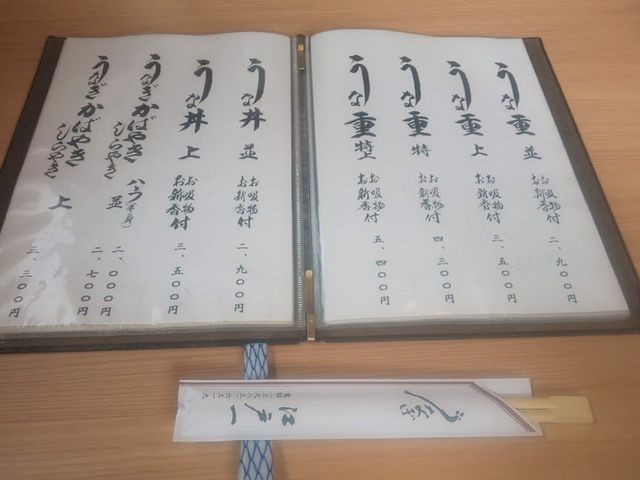 うな重 並 お吸物 お新香付 二、九〇〇円
うな重 上 お吸物 お新香付 三、五〇〇円
うな重 特 お吸物 お新香付 四、三〇〇円
うな重 特上 お吸物 お新香付 五、四〇〇円
うな丼 並 お吸物 お新香付 二、九〇〇円
うな丼 上 お吸物 お新香付 三、五〇〇円
うなぎ かばやき しらやき ハーフ(半身) 並 二、〇〇〇円 二、七〇〇円
うなぎ かばやき しらやき 上 三、三〇〇円
うなぎ
江戸一